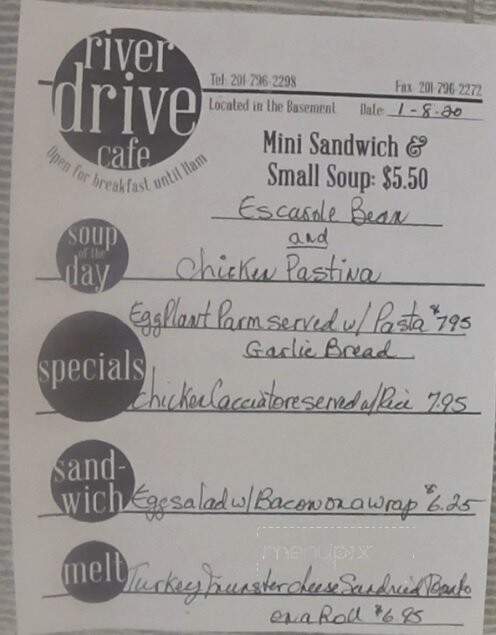 river
drive
cafe
Open for breakfast until 11am
Tel: 201-796-2298
Fax 201-796-2272
Located in the Basement
Date 1-8-20
Mini Sandwich &
Small Soup: $5.50
soup
of the
day
Escarole Bean
and
Chicken Pastina
specials
EggPlant Parm served w/ Pasta $7.95
Garlic Bread
Chicken Cacciatore served w/ Rice 7.95
sand-
wich
Eggsalad w/ Bacon on a wrap $6.25
menupix
melt
Turkey, munster cheese Sandried Tomato
on a Roll $6.95